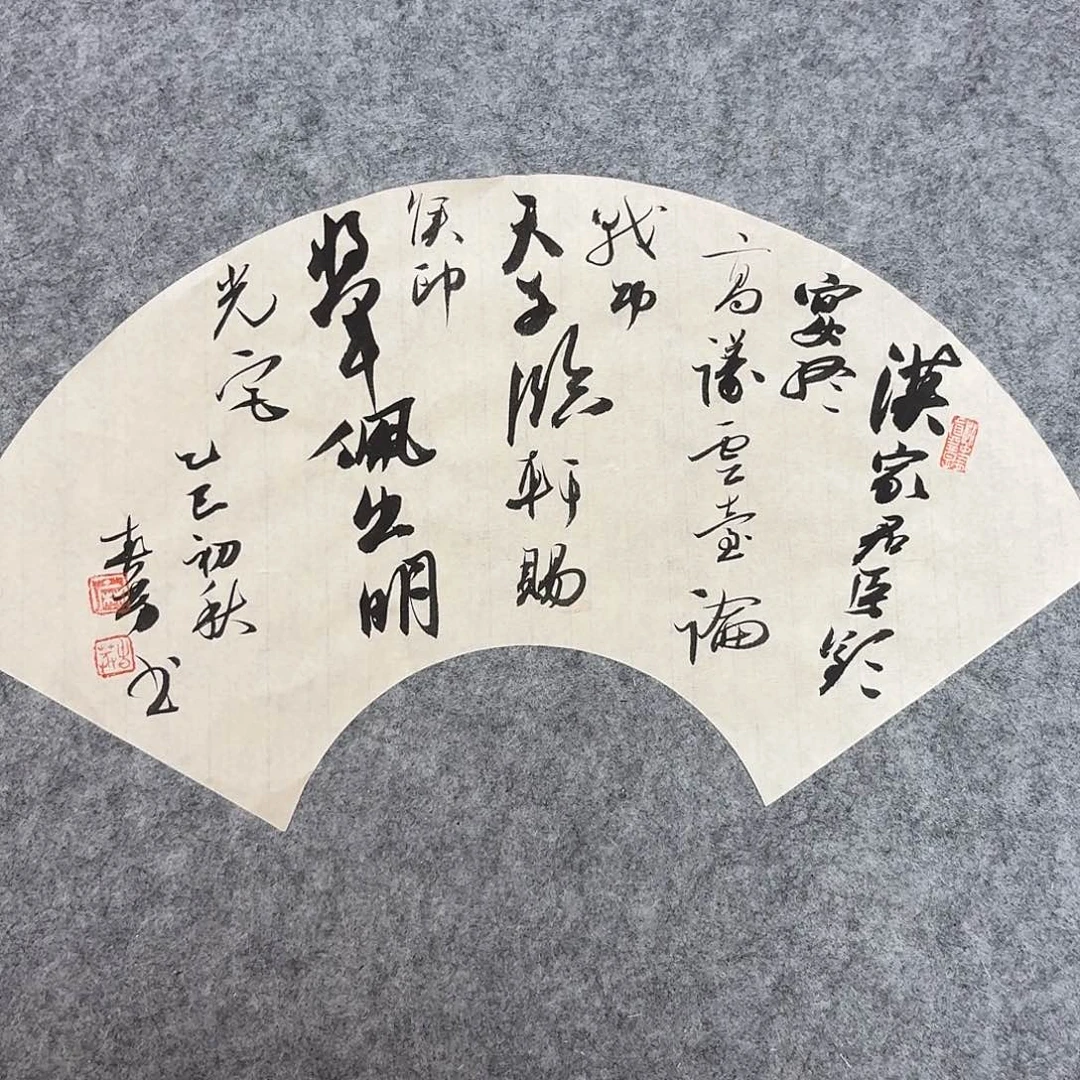 漢家君臣歡
宴終
高議雲臺論
戰功
天子臨軒賜
侯印
將軍佩出明
光宮
乙巳初秋
书